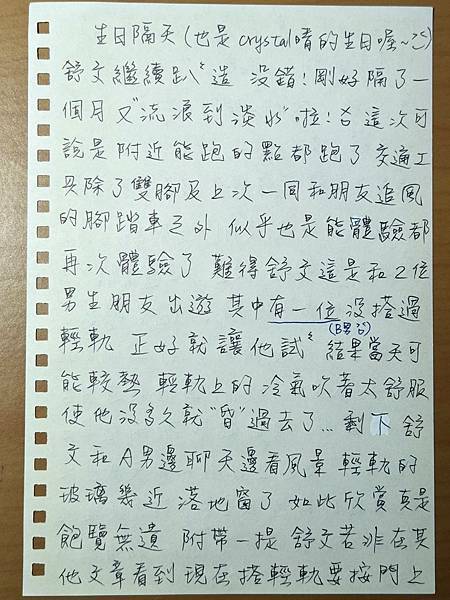 生日隔天(也是crystal晴的生日喔~
舒文繼續趴〞造 沒錯!剛好隔了一
個月又"流浪到淡水"啦!ㄎ這次可
說是附近能跑的點都跑了 交通工
具除了雙腳及上次一同和朋友追風
的腳踏車之外 似乎也是能體驗都
再次體驗了 難得舒文這是和2位
男生朋友出遊 其中有一位沒搭過
(B男
輕軌 正好就讓他試〞 結果當天可
能較熱 輕軌上的冷氣吹著太舒服
使他沒多久就"昏"過去了... 剩下舒
文和A男邊聊天邊看風景 輕軌的
玻璃幾近 落地窗了 如此欣賞真是
飽覽無遺 附帶一提 舒文若非在其
他文章看到 現在搭輕軌要按門上